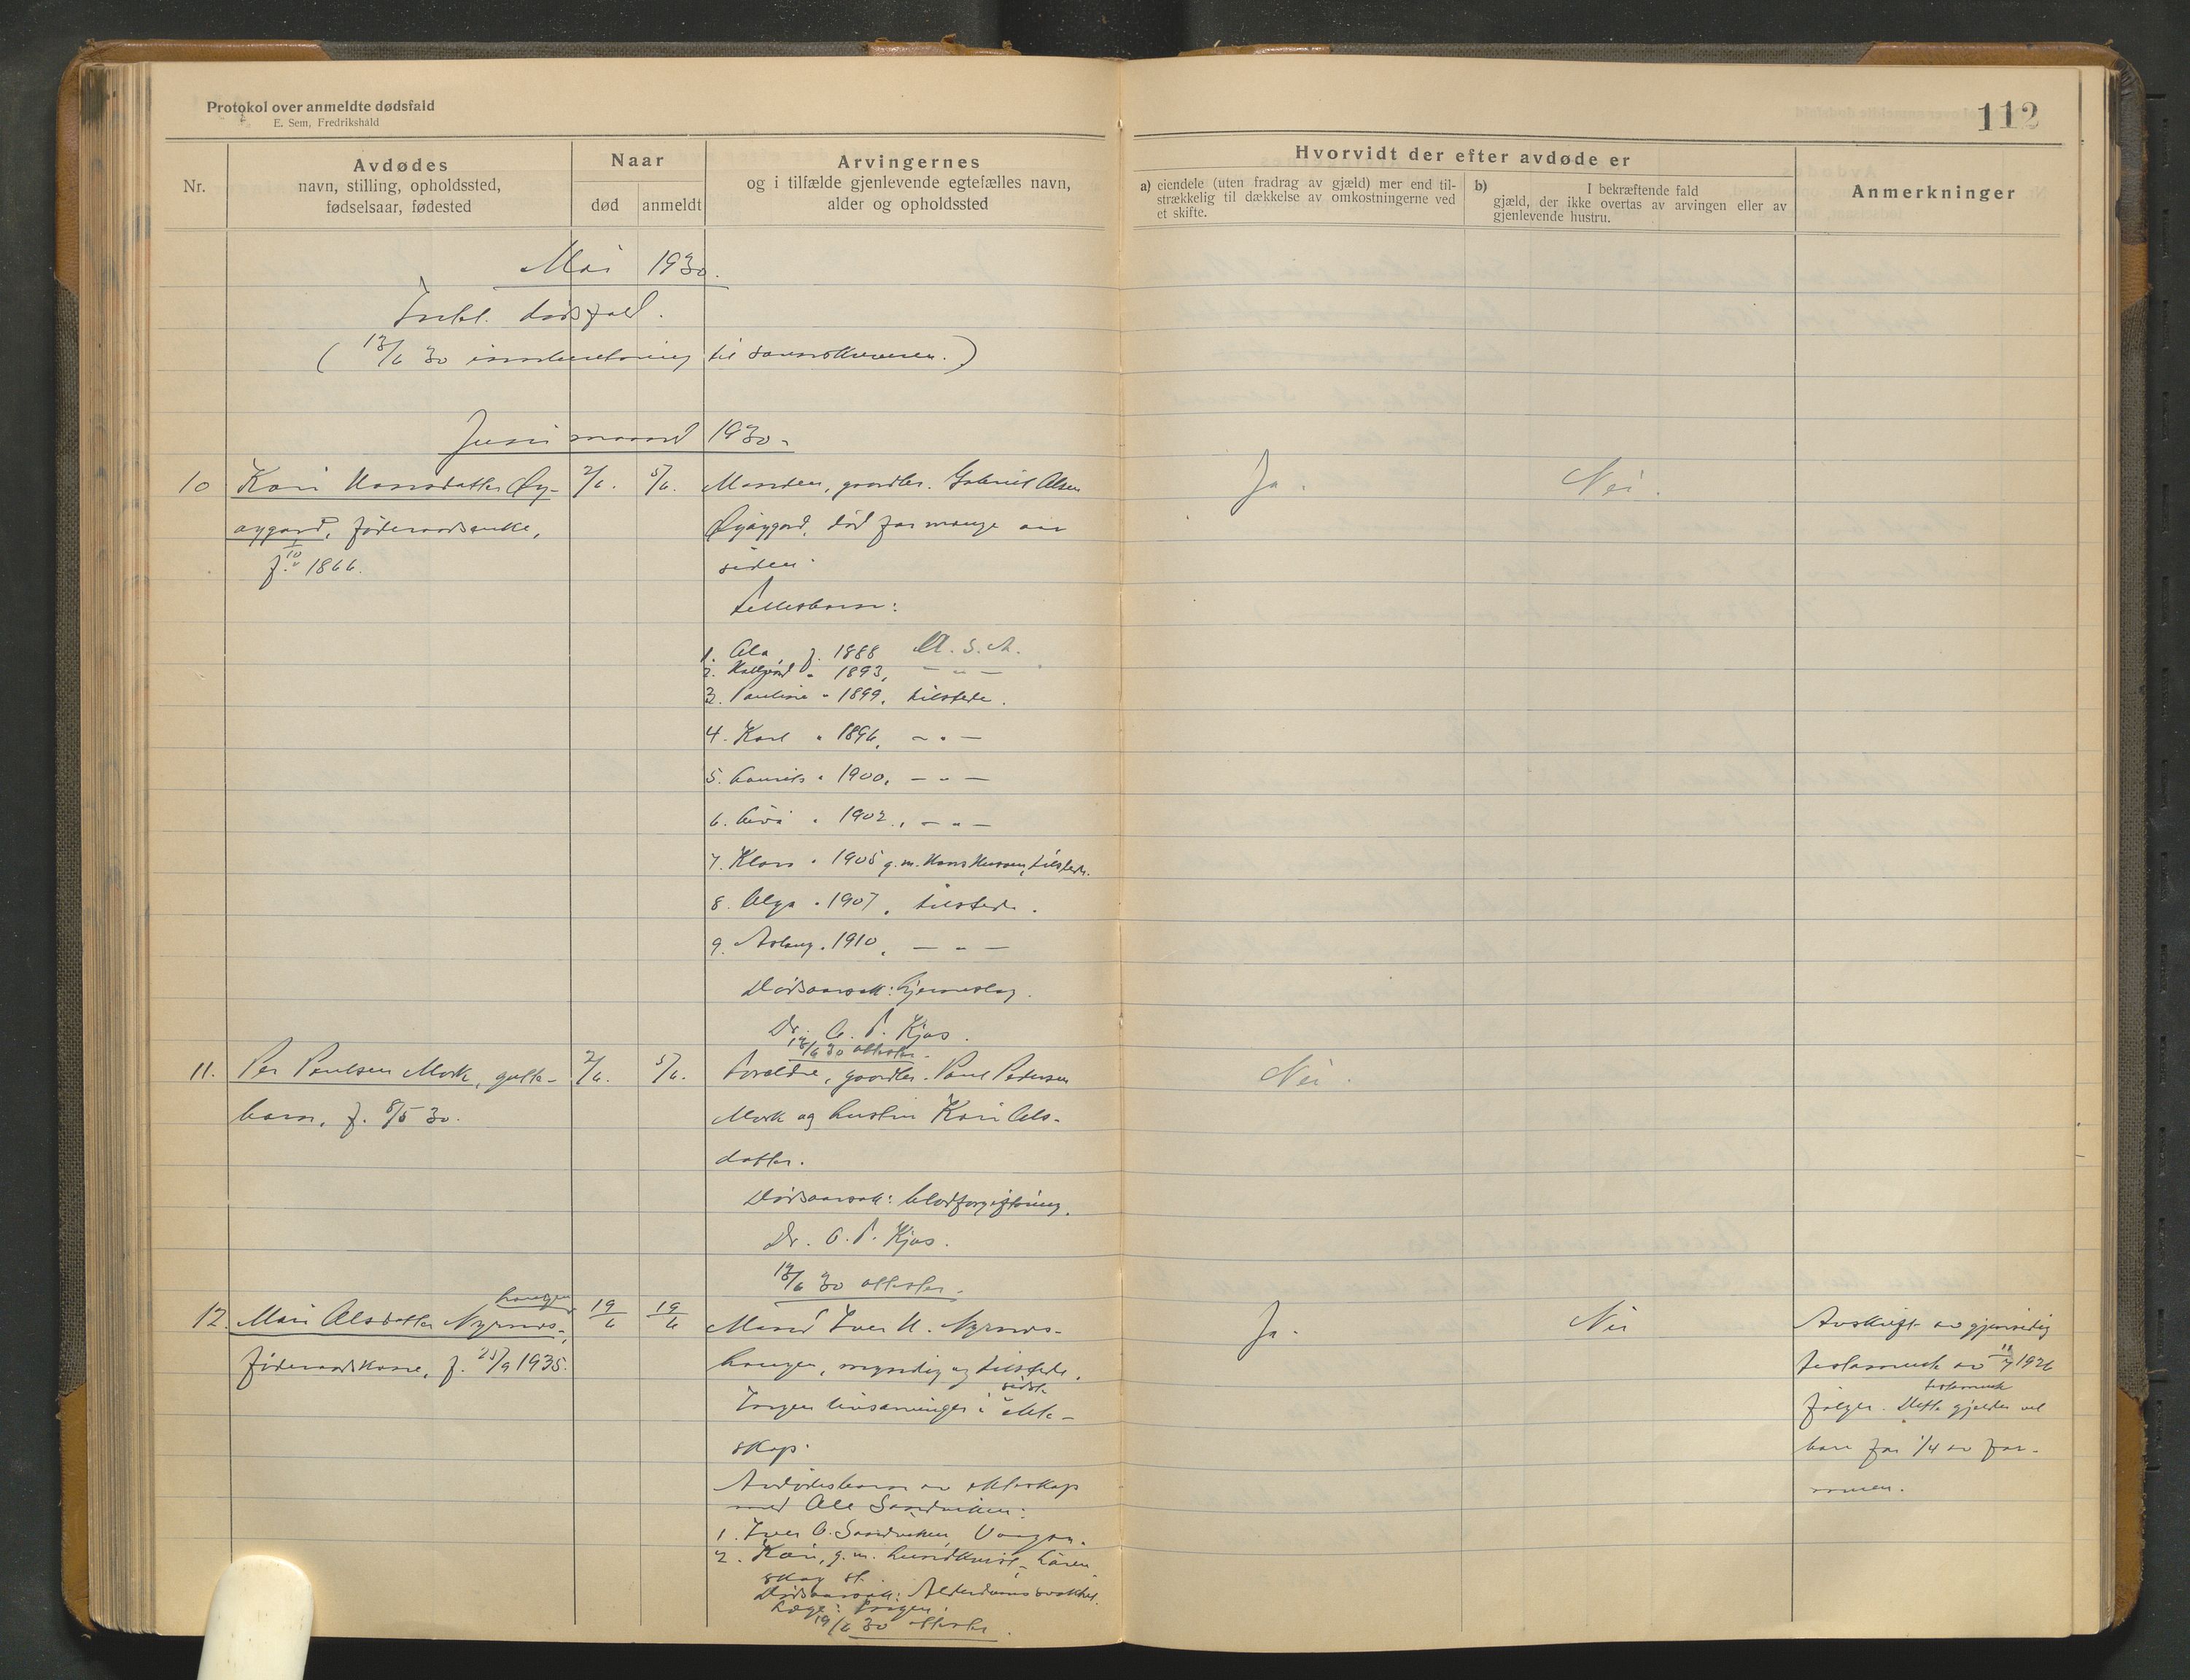 Protokol over anmeldte dødsfald
E. Sem, Fredrikshald
112
Nr.
Avdødes
navn, stilling, opholdssted,
fødselsaar, fødested
Naar
død
anmeldt
Arvingernes
og i tilfælde gjenlevende egtefælles navn,
alder og opholdssted
Hvorvidt der efter avdøde er
a) eiendele (uten fradrag av gjæld) mer end til-
strækkelig til dækkelse av omkostningerne ved
et skifte.
b) I bekræftende fald
gjæld, der ikke overtas av arvingen eller av
gjenlevende hustru.
Anmerkninger
Mai 1930.
Intet dødsfald.
(13/6 30 innberetning til sorenskriveren.)
Juni maaned 1930.
10 Kari Hansdatter Øy-
aygard, føderaadsenke,
f. 1866.
2/6. 5/6.
Manden, gaardbr. Gabriel Olsen
Øyaygard, død for mange aar
siden.
Fellesbarn:
1. Ola f. 1888 U.S.A.
2. " 1893, — " —
3. Pauline " 1899, tilstede.
4. Karl " 1896, — " —
5. Laurits " 1900, — " —
6. " 1902, — " —
7. Klara " 1905 g.m. Hans tilstede.
8. Olga " 1907, tilstede.
9. Aslaug " 1910, — " —
Dødsaarsak: hjerneslag.
Dr. O. P. Kjos.
13/6 30 attester.
Ja.
Nei.
11. Per Paulsen Mork, gutte-
barn, f. 8/5 30.
2/6. 5/6.
Foreldre, gaardbr. Paul Pedersen
Mork og hustru Kari Ols-
datter.
Dødsaarsak: blodforgiftning.
Dr. O. P. Kjos.
13/6 30 attester.
Nei.
12. Mari Olsdatter Nyrnes-
haugen
føderaadskone, f. 25/9 1935.
19/6 19/6
Mand Iver N. Nyrnes-
haugen, myndig og tilstede.
Ingen livsarvinger i sidste ekte-
skap.
Avdødes barn av ekteskap
med Ole Sandviken:
1. Iver O. Sandviken,
2. Kari, g.m. Lundkvist, Lören-
skog st.
Dødsaarsak: Alderdomssvakhet.
Læge: Ingen.
19/6 30 attester.
Ja.
Nei
Avskrift av gjensidig
testamente av 11/7 1926
følger. Dette testamente gjelder vel
bare for 1/4 av for-
muen.